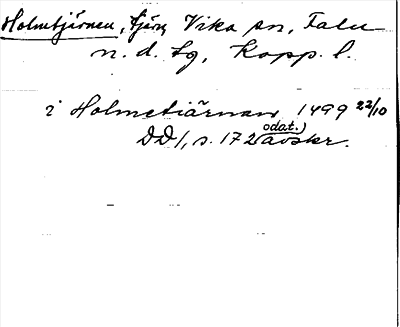 Holmtjärnen, tjärn, Vika sn, Falu
n. d. lg, Kopp. l.
i Holmetiärnan 1499 22/10
DD 1, s. 172 (odat.) avskr.